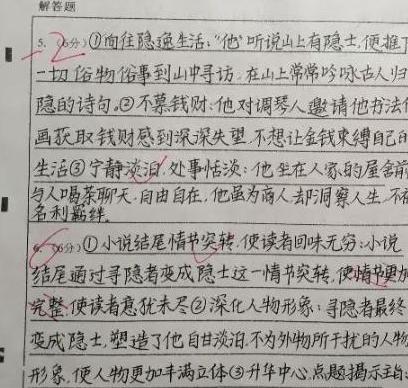 解答题
5.（6分）①向往隐逸生活："他"听说山上有隐士,便推
-2
一切俗物俗事到山中寻访,在山上常常吟咏古人归
隐的诗句。②不慕钱财:他对调琴人邀请他书法
画获取钱财感到深深失望,不想让金钱束缚自己的
生活③宁静淡泊,处事恬淡:他坐在人家的屋舍前
与人喝茶聊天,自由自在,他虽为商人,却洞察人生,不
名利羁绊.
6.（6分）①小说结尾情节突转,使读者回味无穷:小说
结尾通过寻隐者变成隐士这一情节突转,使情节更加
完整,使读者意犹未尽②深化人物形象:寻隐者最终
变成隐士,塑造了他自甘淡泊,不为外物所干扰的人物
形象,使人物更加丰满立体③升华中心,点题揭示主